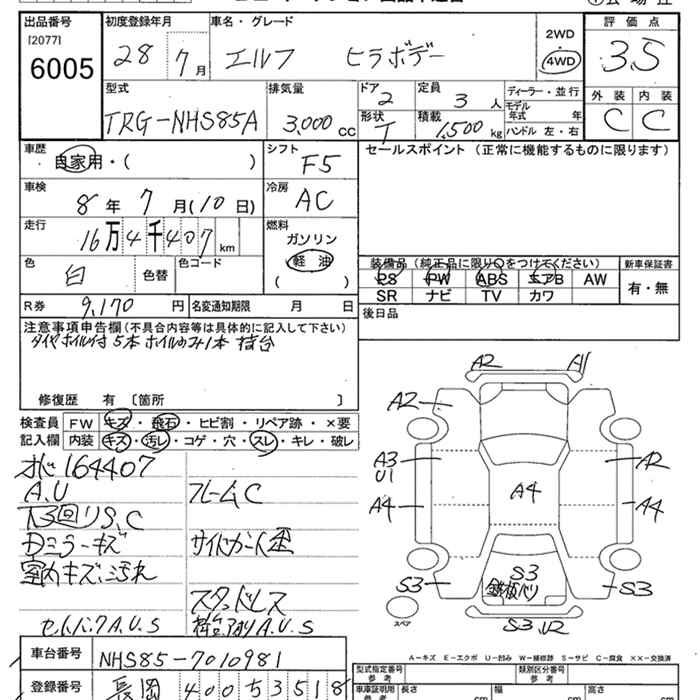 出品番号 初度登録年月 車名・グレード 2WD 評価点
[2077] 28 7月 エルフ ヒラボデー 4WD 3.5
6005
型式 排気量 ドア 定員 ディーラー・並行 外装 内装
TRG-NHS85A 3,000cc 2 3人 モデル年式 年 C C
形状 積載 ハンドル 左・右
T 1,500kg
車歴 シフト セールスポイント (正常に機能するものに限ります)
自家用・( ) F5
車検 冷房
8年 7月(10日) AC
走行 燃料
16万4千407km ガソリン
軽油
( )
色 色替 色コード
白
装備品(純正品に限り○をつけてください) 新車保証書
PS PW ABS エアB AW 有・無
SR ナビ TV カワ
R券 9,170円 名変通知期限 月 日
後日品
注意事項申告欄(不具合内容等は具体的に記入して下さい)
タイヤホイル付 5本 ホイルのみ1本 積台
修復歴 有 〔箇所 〕
検査員 FW キズ・飛石・ヒビ割・リペア跡・×要
記入欄 内装 キズ・汚レ・コゲ・穴・スレ・キレ・破レ
164407
A.U フレームC
下廻りS.C
Dミラーキズ サイドガード歪
室内キズ、汚れ
スタッドレス
A.U.S A.U.S
A2 A1
A2
A3 A2
U1
A4 A4 A4
S3 S3 S3
鉄板ハリ
スペア S3 U2
A-キズ E-エクボ U-凹み W-補修跡 S-サビ C-腐食 XX-交換済
車台番号 NHS85-7010981
型式指定番号 類別区分番号
参考 参考
登録番号 長岡 400 そ 3518
車庫証明用 長さ cm 幅 cm 高さ cm